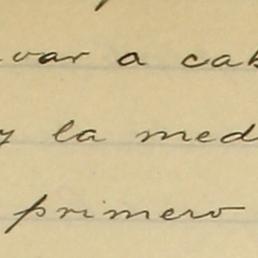 var a cab
y la med
primero